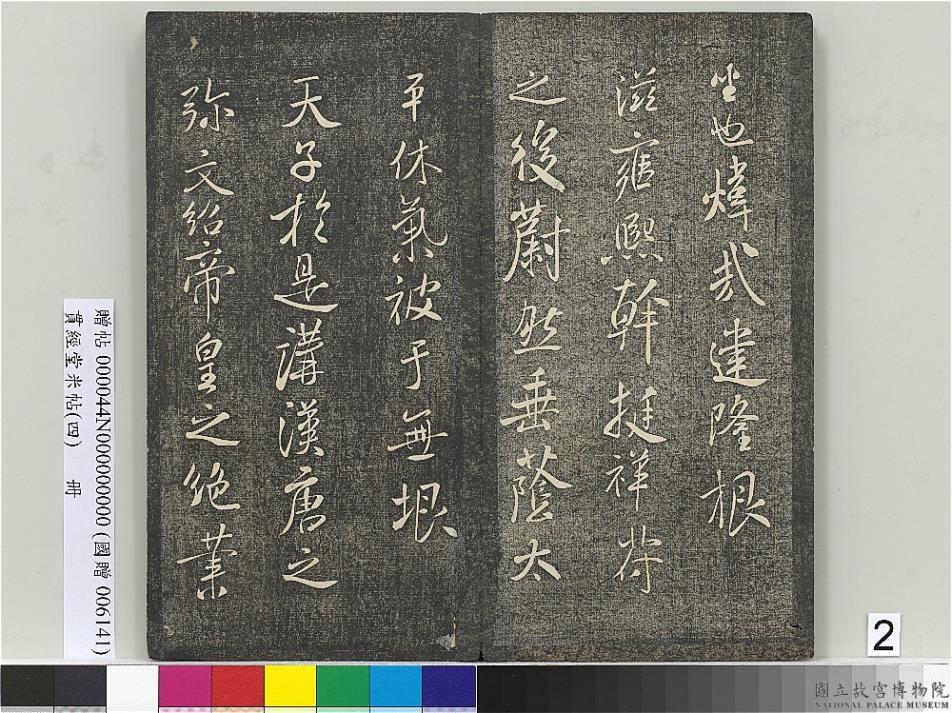 坐也煒哉建隆根
滋雍熙幹挺祥符
之後蔚然垂蔭太
平休氣被于無垠
天子於是講漢唐之
弥文紹帝皇之絕業
贈帖 000044N000000000 (國贈 006141)
貫經堂米帖(四) 冊
2
國立故宮博物院
NATIONAL PALACE MUSEUM